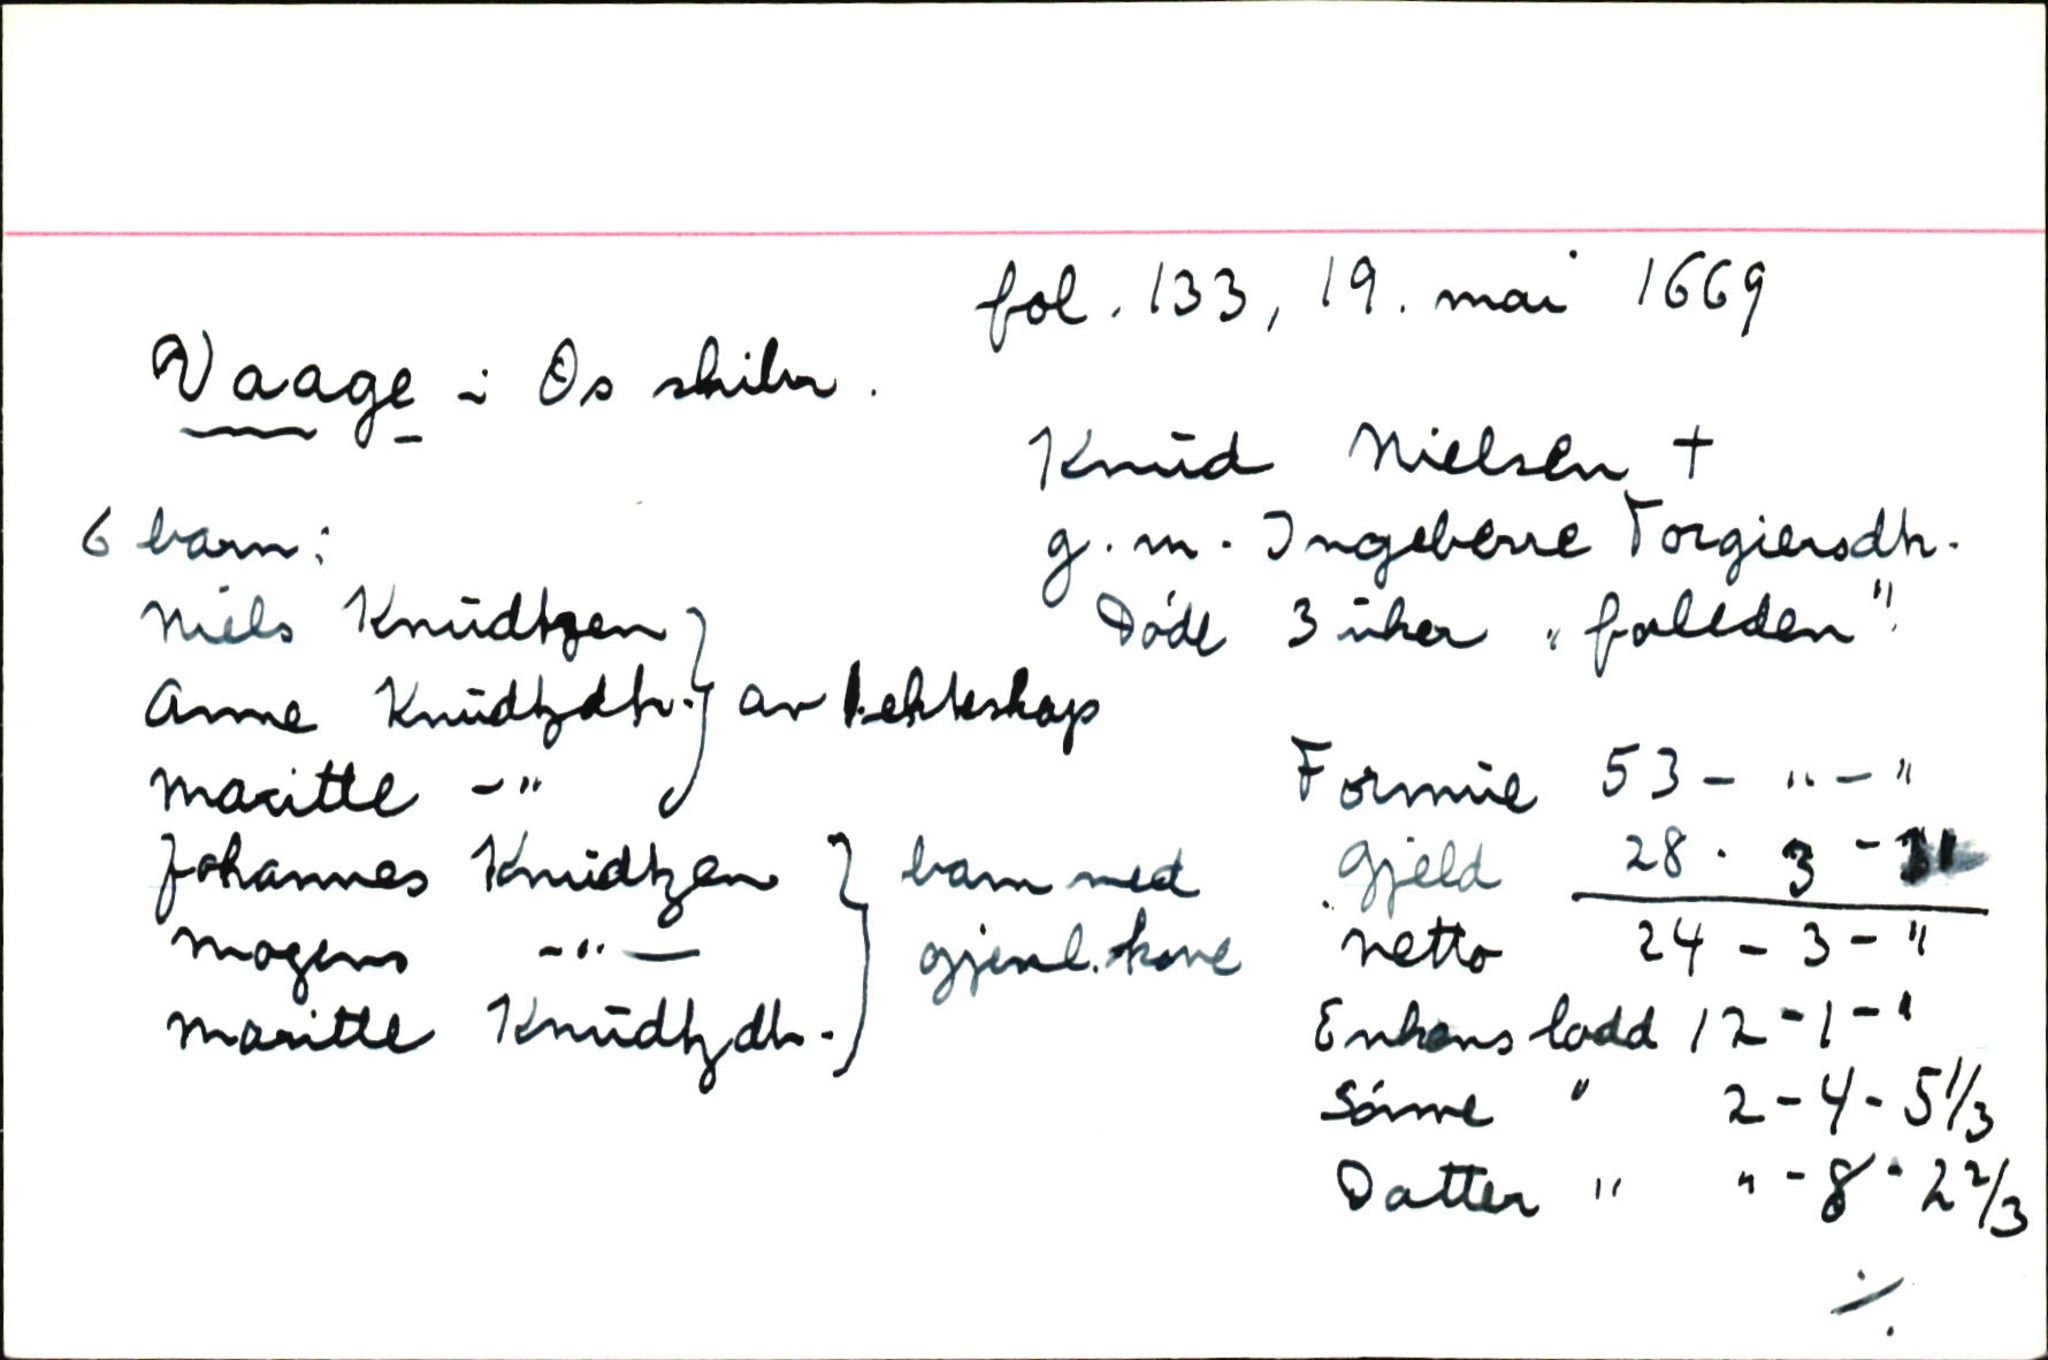 fol. 133, 19. mai 1669
Vaage i Os skibr.
Knud Nielsen †
g. m. Ingeborre Torgiersdtr.
Døde 3 uker "fasteden"
6 barn:
Niels Knudtzen
Anne Knudtzdtr. } av 1. ekteskap
Maritte -"
Johannes Knudtzen } barn med
Mogens -"- gjenl. kone
Maritte Knudtzdtr.
Formue 53 - " - "
Gjeld 28 - 3 - "
Netto 24 - 3 - "
Enkens lodd 12 - 1 - "
Sønne " 2 - 4 - 5 1/3
Datter " " - 8 - 2 2/3
./.